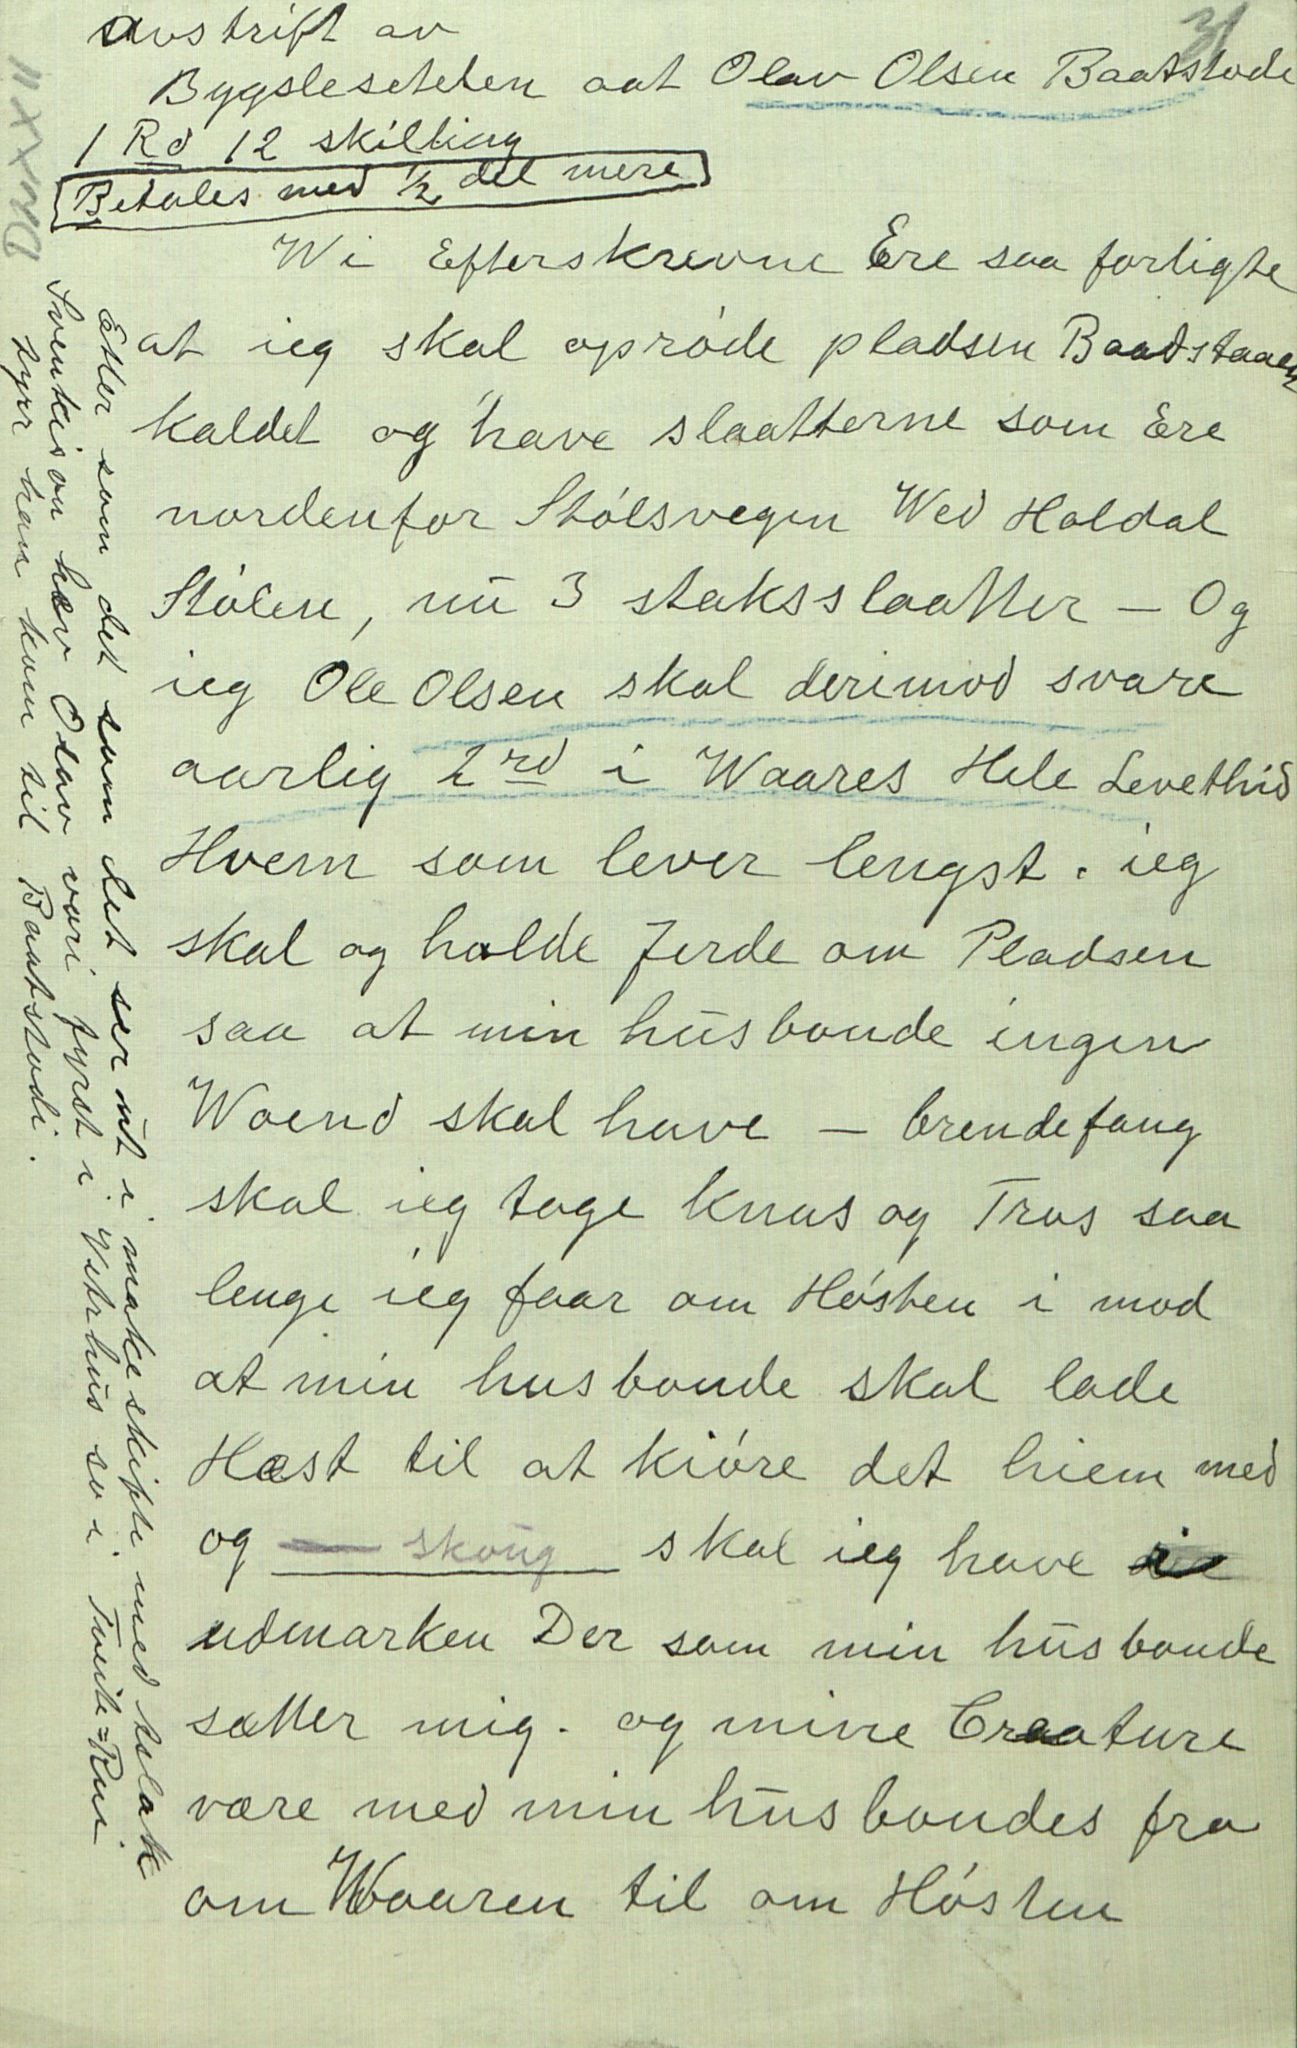 31
avskrift av
Bygslesetelen aat Olav Olsen Baatstode
1 Rd 12 skilling
Betales med 1/2 del mere
Wi Efterskrevne Ere saa forligte
at ieg skal oprøde pladsen Baadstaaen
kaldet og have slaatterne som Ere
nordenfor Stølsvegen Wed Haldal
Stølen, nu 3 staksslaatter – Og
ieg Ole Olsen skal derimod svare
aarlig 2 rd i Waares Hele Levethid
Hvem som lever lengst. ieg
skal og holde Jerde om Pladsen
saa at min husbonde ingen
Waend skal have – brendefang
skal ieg tage knas og Tras saa
lenge ieg faar om Høsten i mod
at min husbonde skal lade
Hæst til at kiøre det hiem med
og skoug skal ieg have i
udmarken Der som min husbonde
sætter mig. og mine Creature
være med min husbondes fra
om Waaren til om Høsten
Etter som det som det ser ut i makeskifte med Aslak
Svenkison hev Olav vori fyrst i Ytrhus so i Tveite-Rui
fyrr han kom til Baatstodi.